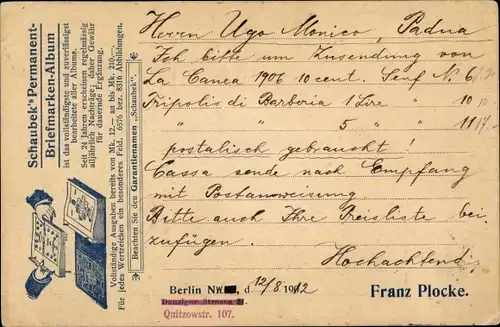 Schaubek's Permanent-
Briefmarken-Album
ist das vollständigste und zuverlässigst
bearbeitete aller Albums.
Seit 24 Jahren erscheinen regelmässig
alljährlich Nachträge; daher Gewähr
für dauernde Ergänzung.
Vollständige Ausgaben bereits von Mk. 12.— an bis Mk. 210.—.
Für jedes Wertzeichen ein besonderes Feld. 6576 bez. 8316 Abbildungen.
Beachten Sie den Garantienamen „Schaubek".
Herrn Ugo Monico, Padua
Ich bitte um Zusendung von
La Canea 1906 10 cent. Senf No 6
Tripolis di Barberia 1 Lire " 10
" " 5 " " 11
postalisch gebraucht!
Cassa sende nach Empfang
mit Postanweisung
Bitte auch Ihre Preisliste bei-
zufügen.
Hochachtend
Berlin NW , d 12/8 1912
Franz Plocke.
Danziger Strasse
Quitzowstr. 107.